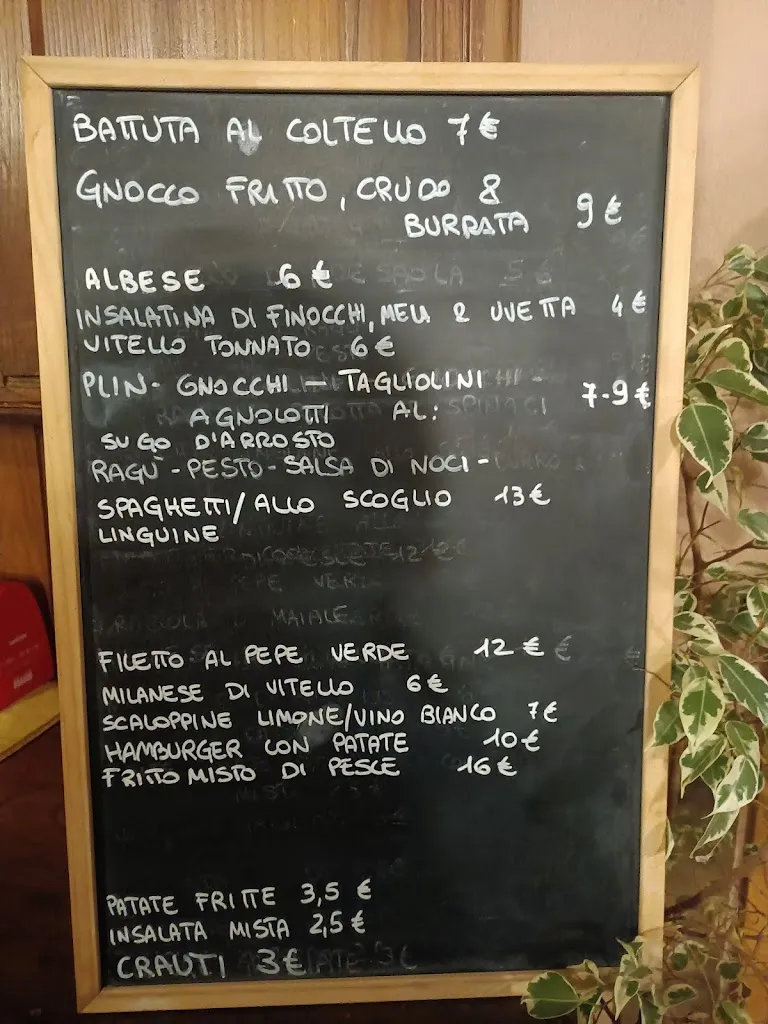 BATTUTA AL COLTELLO 7€
GNOCCO FRITTO, CRUDO &
BURRATA 9€
ALBESE 6€
INSALATINA DI FINOCCHI, MELA & UVETTA 4€
VITELLO TONNATO 6€
PLIN- GNOCCHI - TAGLIOLINI 7-9€
AGNOLOTTI AL:
SUGO D'ARROSTO
RAGÙ - PESTO - SALSA DI NOCI -
SPAGHETTI/ALLO SCOGLIO 13€
LINGUINE
FILETTO AL PEPE VERDE 12€
MILANESE DI VITELLO 6€
SCALOPPINE LIMONE/VINO BIANCO 7€
HAMBURGER CON PATATE 10€
FRITTO MISTO DI PESCE 16€
PATATE FRITTE 3,5 €
INSALATA MISTA 2,5€
CRAUTI 3€